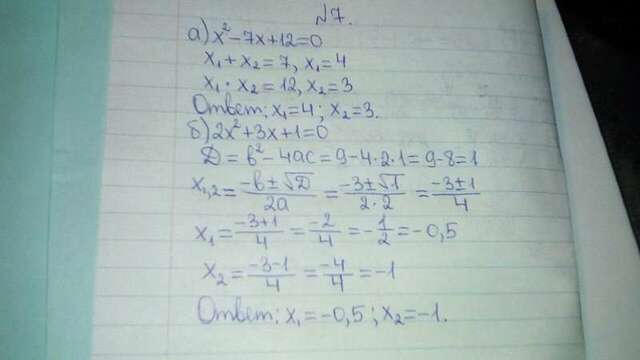 №7.
а) x² - 7x + 12 = 0
x₁ + x₂ = 7, x₁ = 4
x₁ · x₂ = 12, x₂ = 3
Ответ: x₁ = 4; x₂ = 3.
б) 2x² + 3x + 1 = 0
Д = b² - 4ac = 9 - 4·2·1 = 9 - 8 = 1
x₁,₂ = (-b ± √Д)/2a = (-3 ± √1)/(2·2) = (-3 ± 1)/4
x₁ = (-3+1)/4 = -2/4 = -1/2 = -0,5
x₂ = (-3-1)/4 = -4/4 = -1
Ответ: x₁ = -0,5; x₂ = -1.